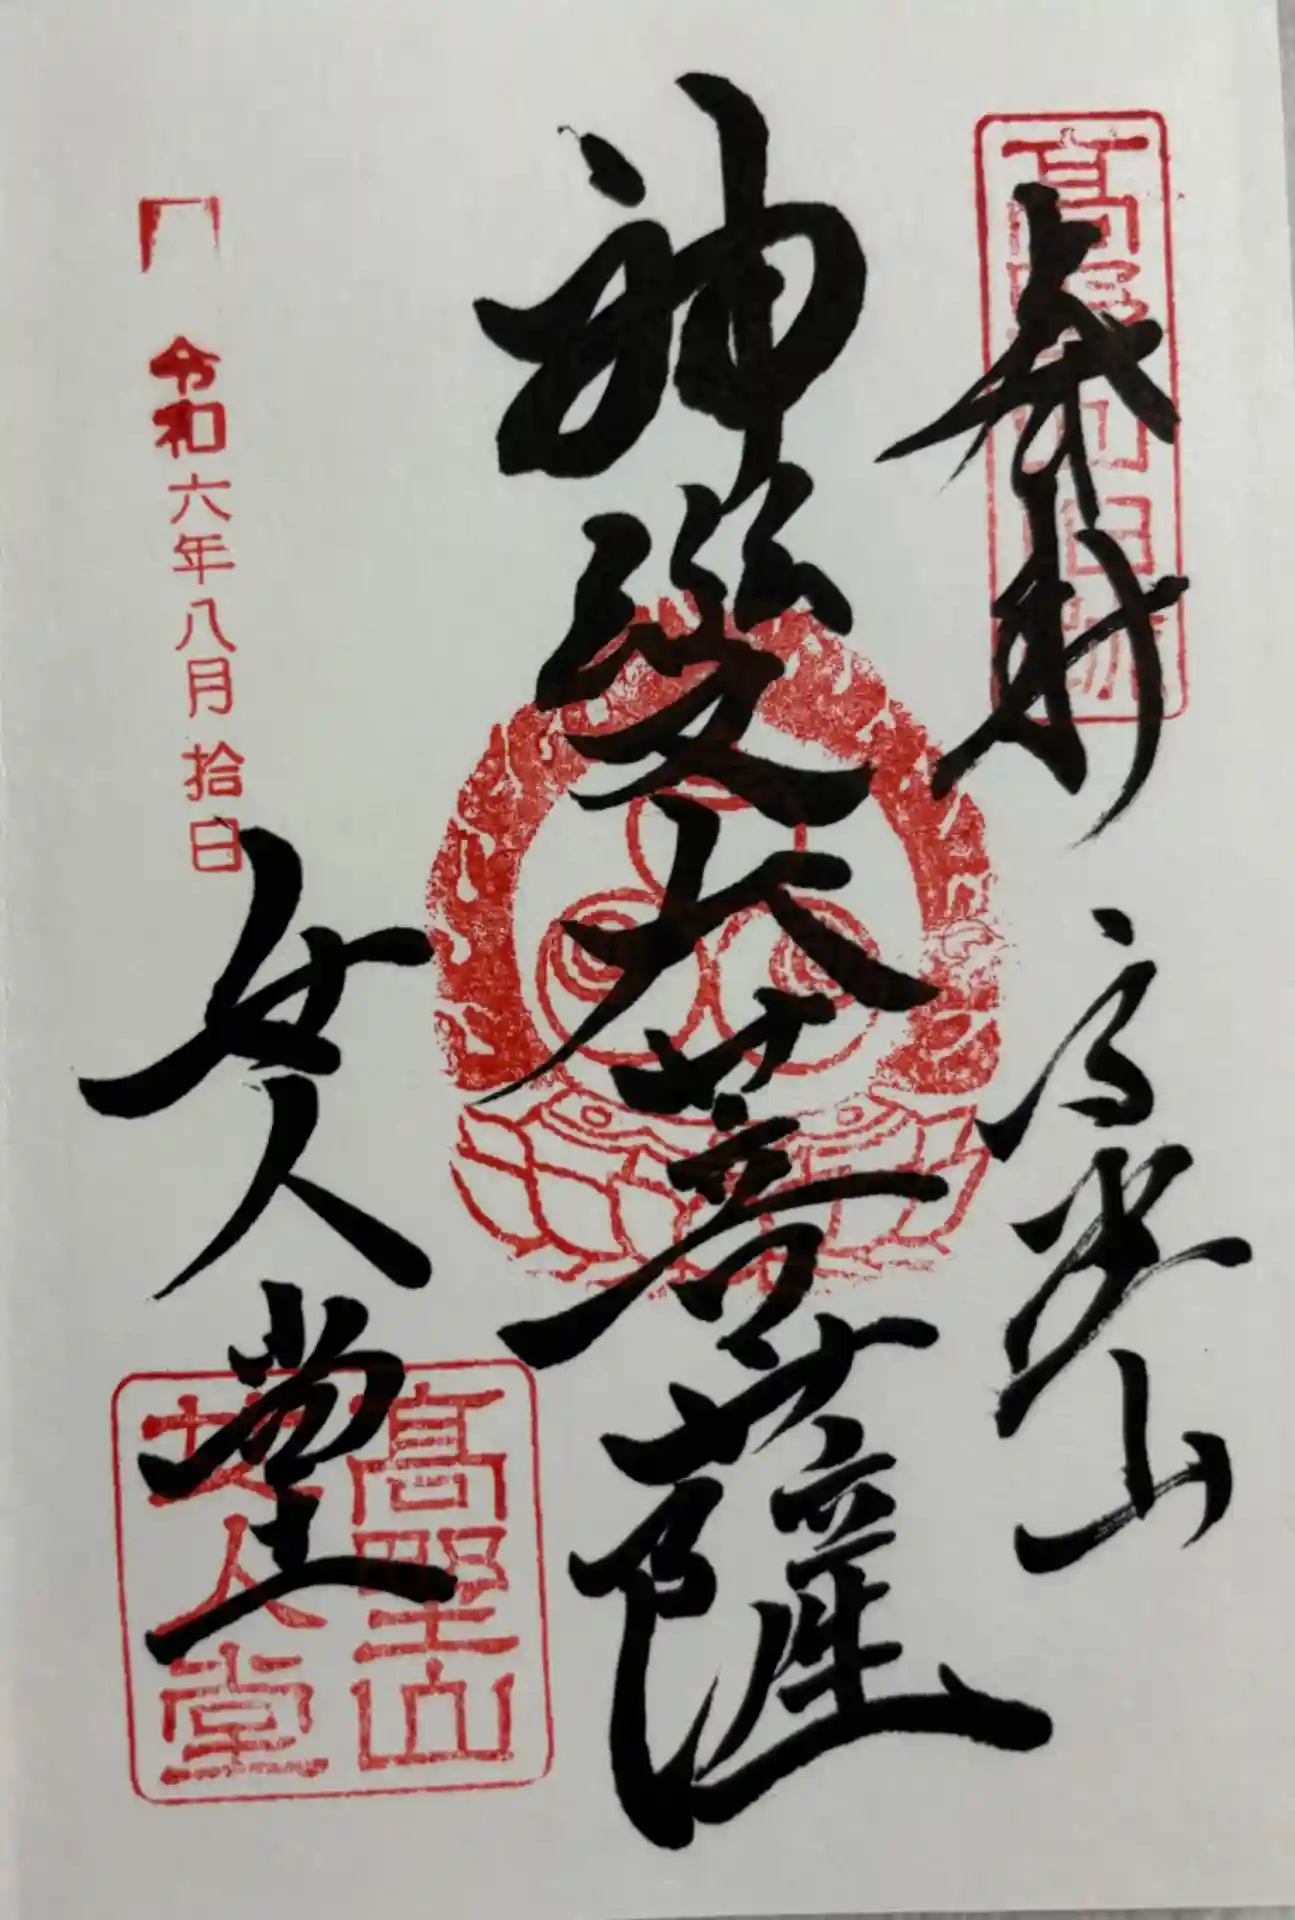 奉拝 高野山
高野山旧跡
神變大菩薩
令和六年八月拾日
女人堂
高野山
女人堂